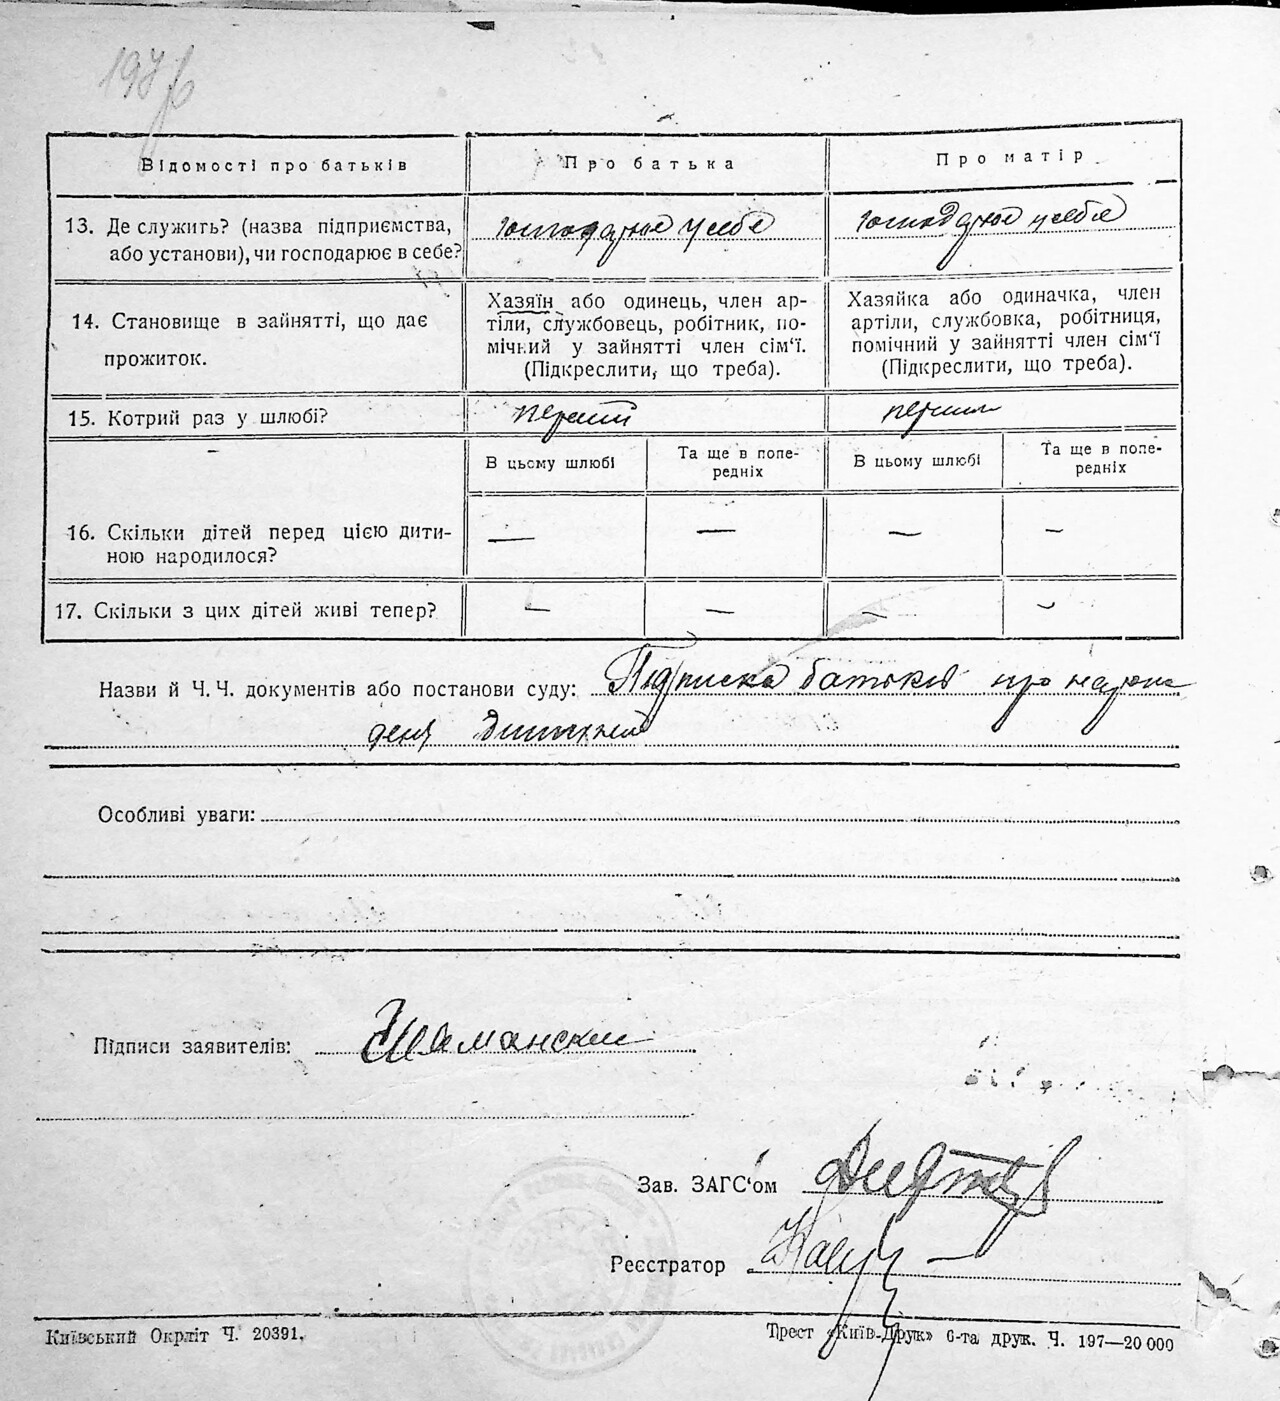 Відомості про батьків
Про батька
Про матір
13. Де служить? (назва підприємства,
або установи), чи господарює в себе?
господарює у себе
господарює у себе
14. Становище в зайнятті, що дає
прожиток.
Хазяїн або одинець, член ар-
тіли, службовець, робітник, по-
мічний у зайнятті член сім‘ї.
(Підкреслити, що треба).
Хазяйка або одиначка, член
артіли, службовка, робітниця,
помічний у зайнятті член сім‘ї
(Підкреслити, що треба).
15. Котрий раз у шлюбі?
перший
В цьому шлюбі
Та ще в попе-
редніх
В цьому шлюбі
Та ще в попе-
редніх
16. Скільки дітей перед цією дити-
ною народилося?
— — — —
17. Скільки з цих дітей живі тепер?
— — — —
Назви й Ч. Ч. документів або постанови суду: Підписка батьків про народж
Особливі уваги:
Підписи заявителів:
Зав. ЗАГС‘ом
Реєстратор
Київський Окрліт Ч. 20391.
Трест «Київ-Друк» 6-та друк. Ч. 197—20 000